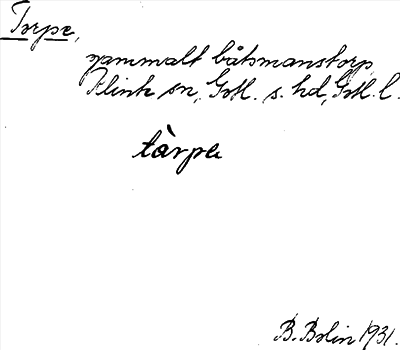 Torpe,
gammalt båtsmanstorp,
Klink sn, Gotl. s. hd, Gotl. l.
tàrpe
B. Bolin 1931.